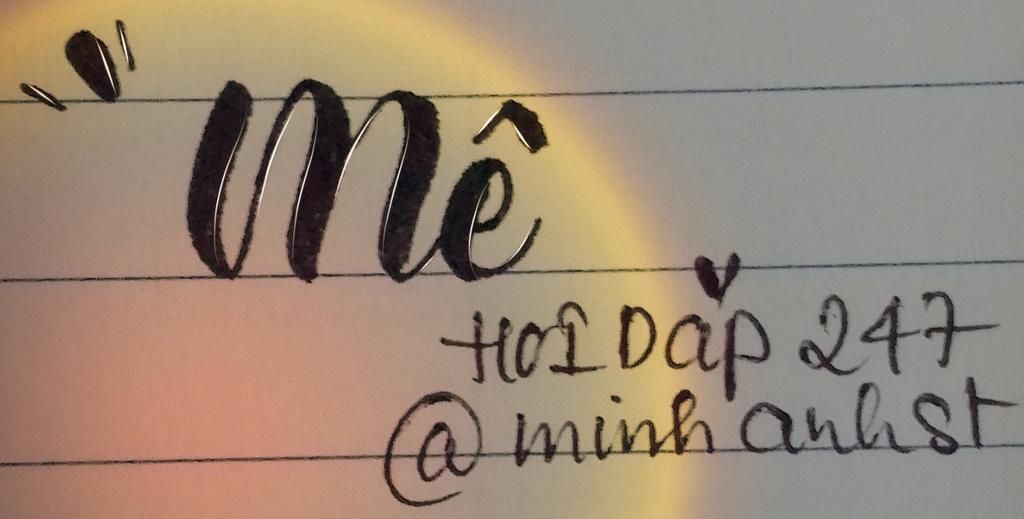 Mê
HOI Dap 247
@minhanhst